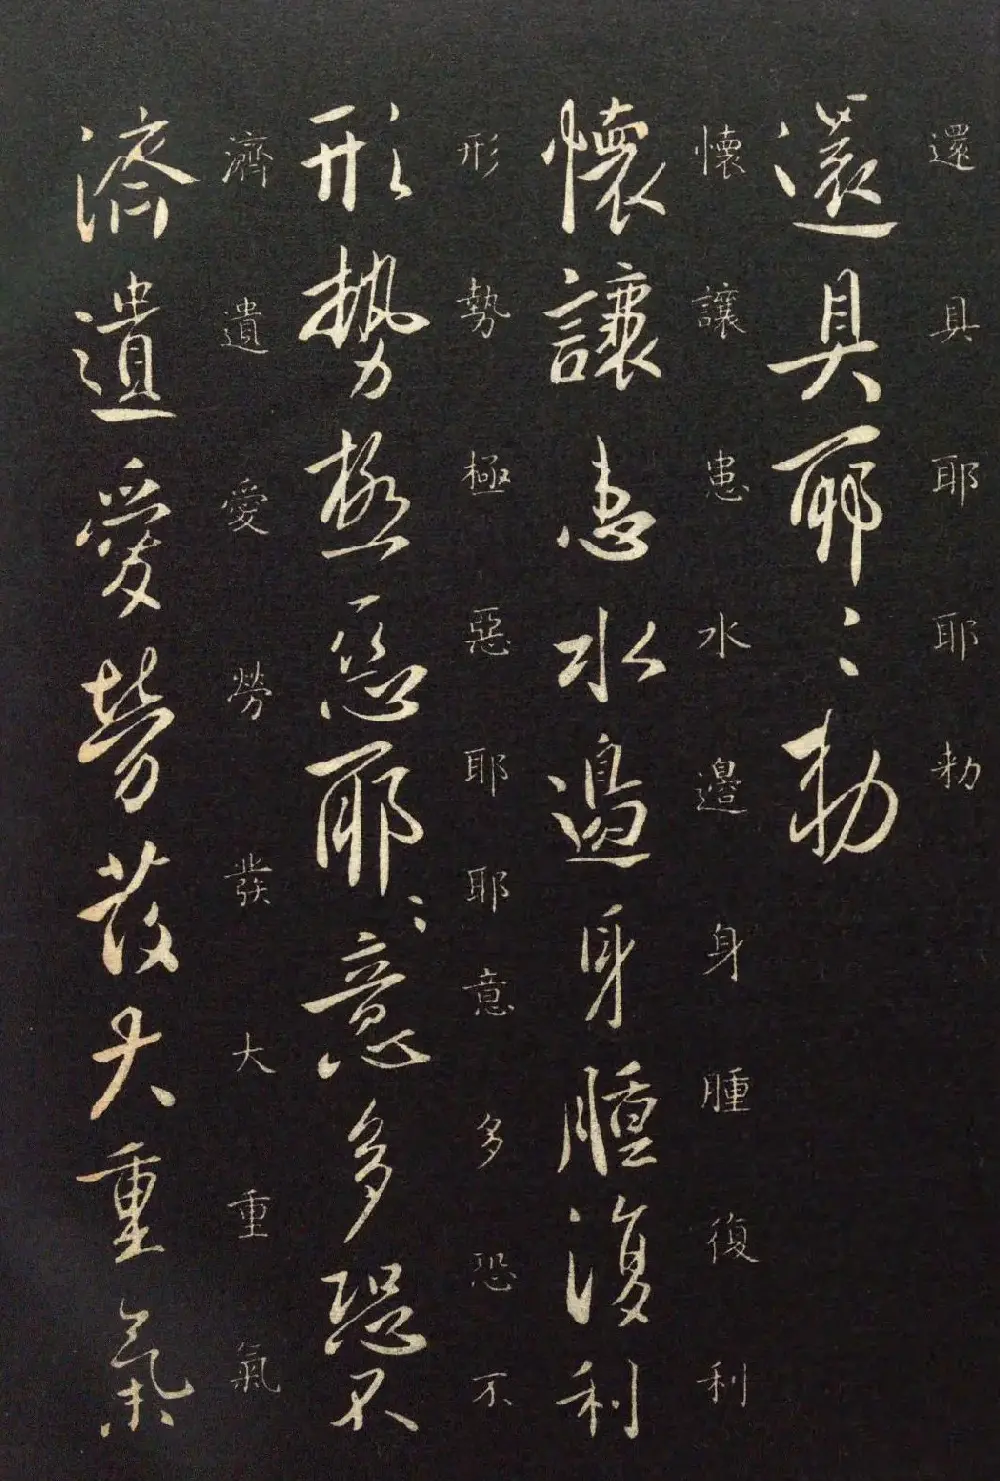 還
具
耶
耶
勅
還具耶〻勅
懷
讓
患
水
邊
身
腫
復
利
懷讓患水邊身腫復利
形
勢
極
惡
耶
耶
意
多
恐
不
形勢極惡耶〻意多恐不
濟
遺
愛
勞
發
大
重
氣
濟遺愛勞發大重氣